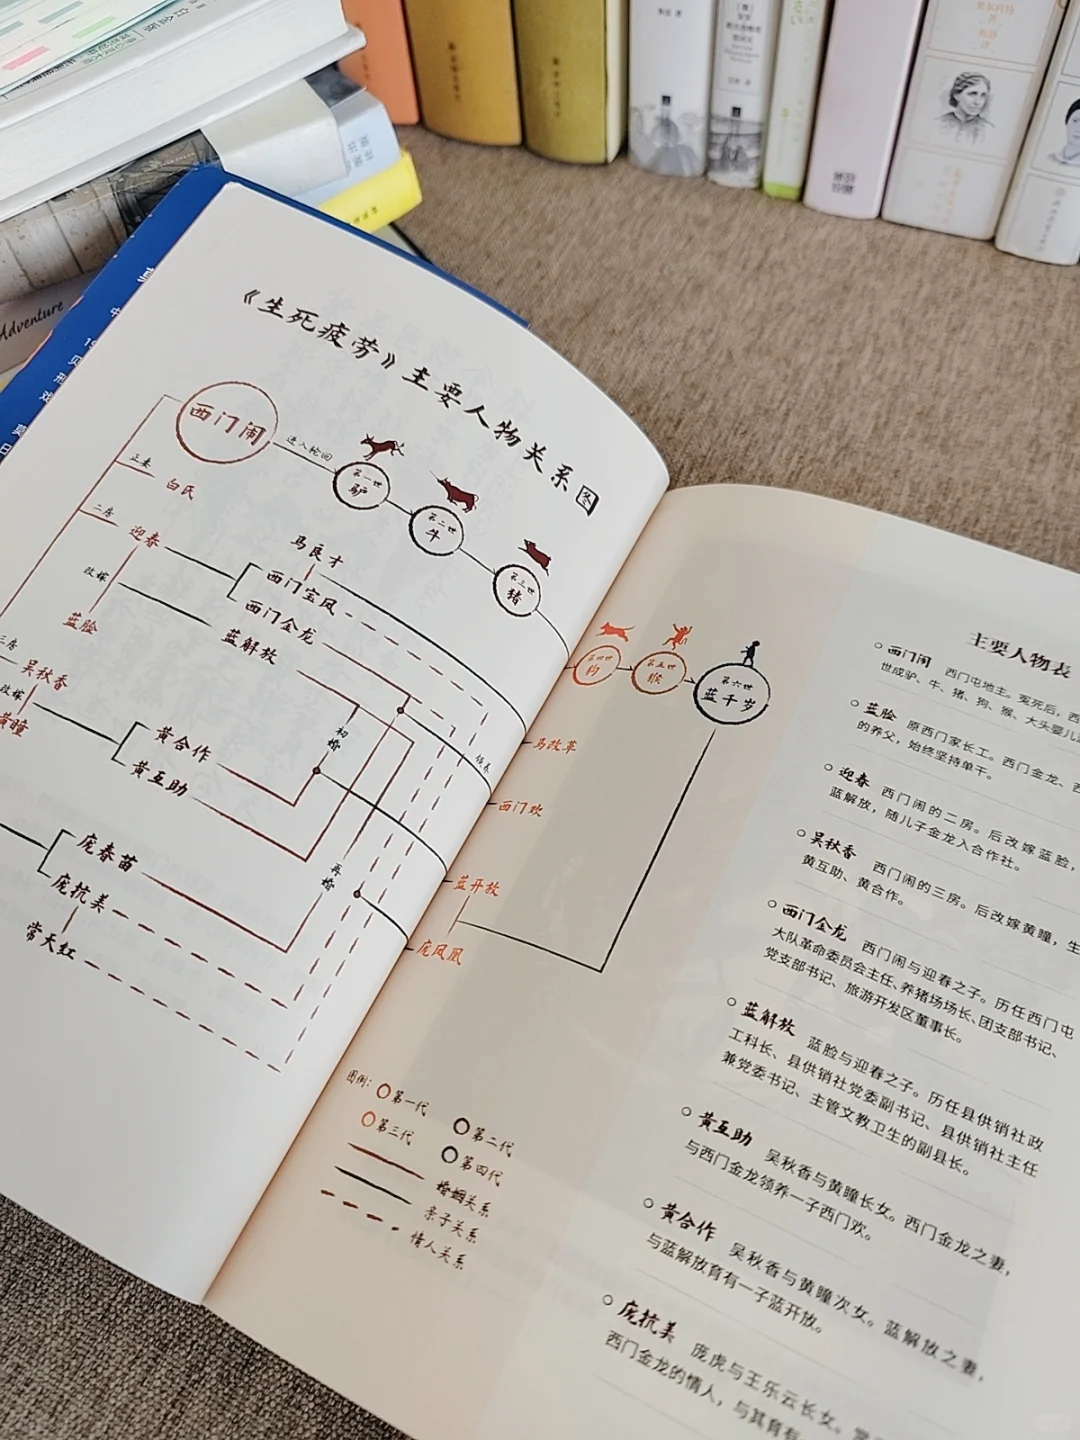 Adventure
《生死疲劳》主要人物关系图
西门闹
进入轮回
第一世
驴
第二世
牛
第三世
猪
正妻
白氏
二房
迎春
改嫁
蓝脸
三房
吴秋香
改嫁
黄瞳
马良才
西门宝凤
西门金龙
蓝解放
黄合作
黄互助
初婚
再婚
领养
庞春苗
庞抗美
常天红
第四世
狗
第五世
猴
第六世
蓝千岁
马改革
西门欢
蓝开放
庞凤凰
图例：
第一代
第二代
第三代
第四代
婚姻关系
亲子关系
情人关系
主要人物表
西门闹 西门屯地主。冤死后，西
世成驴、牛、猪、狗、猴、大头婴儿
蓝脸 原西门家长工。西门金龙、西
的养父，始终坚持单干。
迎春 西门闹的二房。后改嫁蓝脸，
蓝解放，随儿子金龙入合作社。
吴秋香 西门闹的三房。后改嫁黄瞳，生
黄互助、黄合作。
西门金龙 西门闹与迎春之子。历任西门屯
大队革命委员会主任、养猪场场长、团支部书记、
党支部书记、旅游开发区董事长。
蓝解放 蓝脸与迎春之子。历任县供销社政
工科长、县供销社党委副书记、县供销社主任
兼党委书记、主管文教卫生的副县长。
黄互助 吴秋香与黄瞳长女。西门金龙之妻，
与西门金龙领养一子西门欢。
黄合作 吴秋香与黄瞳次女。蓝解放之妻，
与蓝解放育有一子蓝开放。
庞抗美 庞虎与王乐云长女。常
西门金龙的情人，与其育有